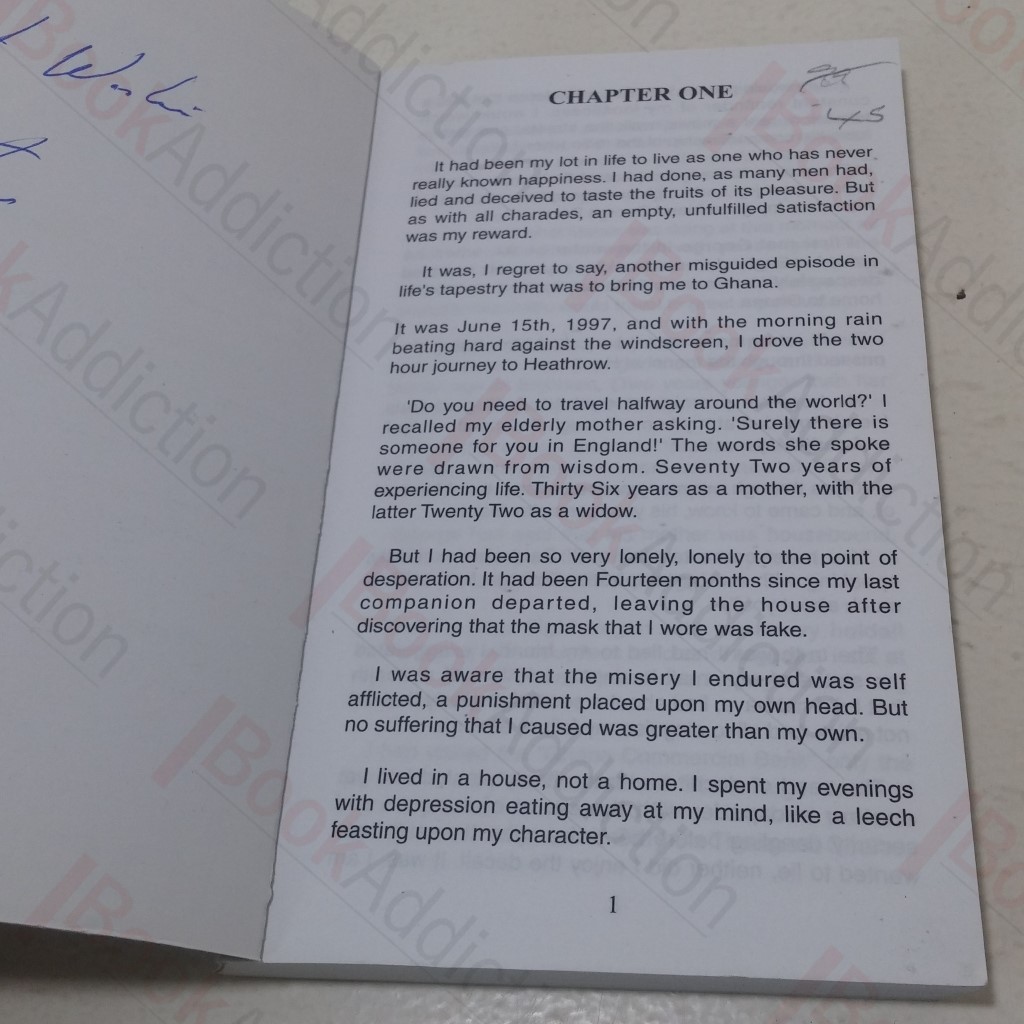 CHAPTER ONE
45
It had been my lot in life to live as one who has never
really known happiness. I had done, as many men had,
lied and deceived to taste the fruits of its pleasure. But
as with all charades, an empty, unfulfilled satisfaction
was my reward.
It was, I regret to say, another misguided episode in
life's tapestry that was to bring me to Ghana.
It was June 15th, 1997, and with the morning rain
beating hard against the windscreen, I drove the two
hour journey to Heathrow.
'Do you need to travel halfway around the world?' I
recalled my elderly mother asking. 'Surely there is
someone for you in England!' The words she spoke
were drawn from wisdom. Seventy Two years of
experiencing life. Thirty Six years as a mother, with the
latter Twenty Two as a widow.
But I had been so very lonely, lonely to the point of
desperation. It had been Fourteen months since my last
companion departed, leaving the house after
discovering that the mask that I wore was fake.
I was aware that the misery I endured was self
afflicted, a punishment placed upon my own head. But
no suffering that I caused was greater than my own.
I lived in a house, not a home. I spent my evenings
with depression eating away at my mind, like a leech
feasting upon my character.
1
BookAddiction